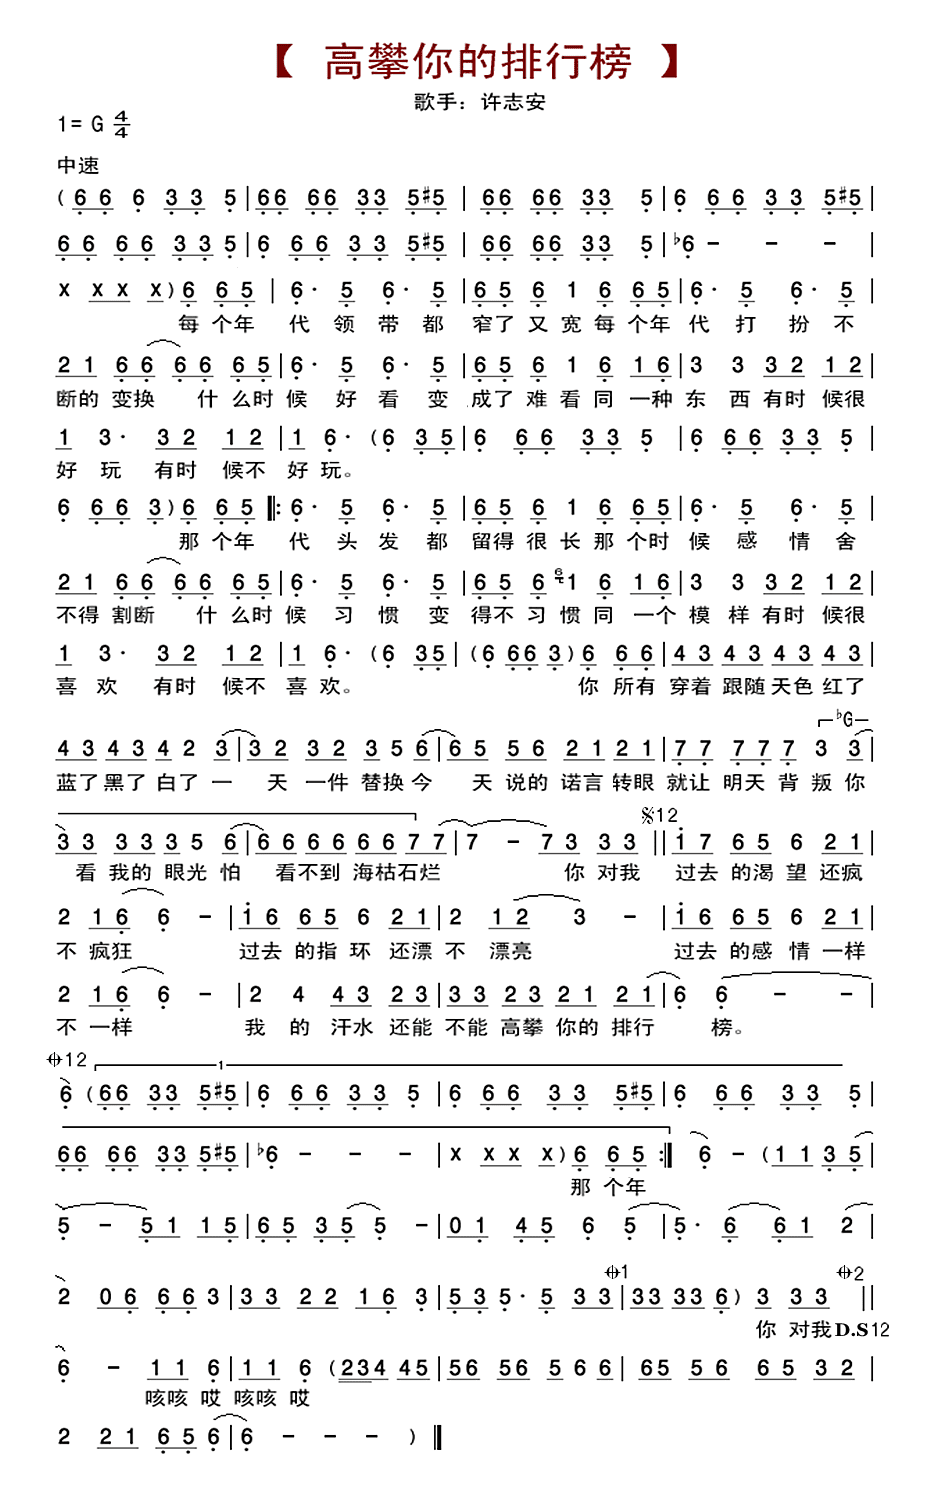 【 高攀你的排行榜 】
歌手：许志安
1= G 4/4
中速
( 6 6 6 3 3 5 | 6 6 6 6 3 3 5 #5 | 6 6 6 6 3 3 5 | 6 6 6 3 3 5 #5 |
6 6 6 6 3 3 5 | 6 6 6 3 3 5 #5 | 6 6 6 6 3 3 5 | b6 - - - |
x x x x ) 6 6 5 | 6 · 5 6 · 5 | 6 5 6 1 6 6 5 | 6 · 5 6 · 5 |
每 个年 代 领 带 都 窄了 又 宽每 个年 代 打 扮 不
2 1 6 6 6 6 6 5 | 6 · 5 6 · 5 | 6 5 6 1 6 1 6 | 3 3 3 2 1 2 |
断的 变换 什 么时 候 好 看 变 成了 难 看 同 一种 东 西 有时 候很
1 3 · 3 2 1 2 | 1 6 · ( 6 3 5 | 6 6 6 3 3 5 | 6 6 6 3 3 5 |
好 玩 有时 候不 好 玩。
6 6 6 3 ) 6 6 5 ‖: 6 · 5 6 · 5 | 6 5 6 1 6 6 5 | 6 · 5 6 · 5 |
那 个年 代 头 发 都 留得 很 长 那 个时 候 感 情 舍
2 1 6 6 6 6 6 5 | 6 · 5 6 · 5 | 6 5 6 6 1 6 1 6 | 3 3 3 2 1 2 |
不得 割断 什 么时 候 习 惯 变 得不 习 惯 同 一个 模 样 有时 候很
1 3 · 3 2 1 2 | 1 6 · ( 6 3 5 | ( 6 6 6 3 ) 6 6 6 | 4 3 4 3 4 3 4 3 |
喜 欢 有时 候不 喜 欢。 你 所有 穿着 跟随 天色 红了
bG
4 3 4 3 4 2 3 | 3 2 3 2 3 5 6 | 6 5 5 6 2 1 2 1 | 7 7 7 7 7 3 3 |
蓝了 黑了 白了 一 天 一件 替换 今 天 说的 诺言 转眼 就让 明天 背 叛 你
𝄋12
3 3 3 3 3 5 6 | 6 6 6 6 6 6 7 7 | 7 - 7 3 3 3 ‖ 1 7 6 5 6 2 1 |
看 我的 眼光 怕 看不到 海枯石烂 你 对我 过去 的渴 望 还疯
2 1 6 6 - | 1 6 6 5 6 2 1 | 2 1 2 3 - | 1 6 6 5 6 2 1 |
不 疯狂 过去 的指 环 还漂 不 漂亮 过去 的感 情 一样
2 1 6 6 - | 2 4 4 3 2 3 | 3 3 2 3 2 1 2 1 | 6 6 - - |
不 一样 我 的 汗水 还能 不能 高攀 你的 排行 榜。
𝄌12 1
6 ( 6 6 3 3 5 #5 | 6 6 6 3 3 5 | 6 6 6 3 3 5 #5 | 6 6 6 3 3 5 |
6 6 6 6 3 3 5 #5 | b6 - - - | x x x x ) 6 6 5 :‖ 6 - ( 1 1 3 5 |
那 个年
5 - 5 1 1 5 | 6 5 3 5 5 - | 0 1 4 5 6 5 | 5 · 6 6 1 2 |
𝄌1 𝄌2
2 0 6 6 6 3 | 3 3 2 2 1 6 3 | 5 3 5 · 5 3 3 | 3 3 3 3 6 ) 3 3 3 ‖
你 对我 D.S12
6 - 1 1 6 | 1 1 6 ( 2 3 4 4 5 | 5 6 5 6 5 6 6 | 6 5 5 6 6 5 3 2 |
咳咳 哎 咳咳 哎
2 2 1 6 5 6 | 6 - - - ) ‖